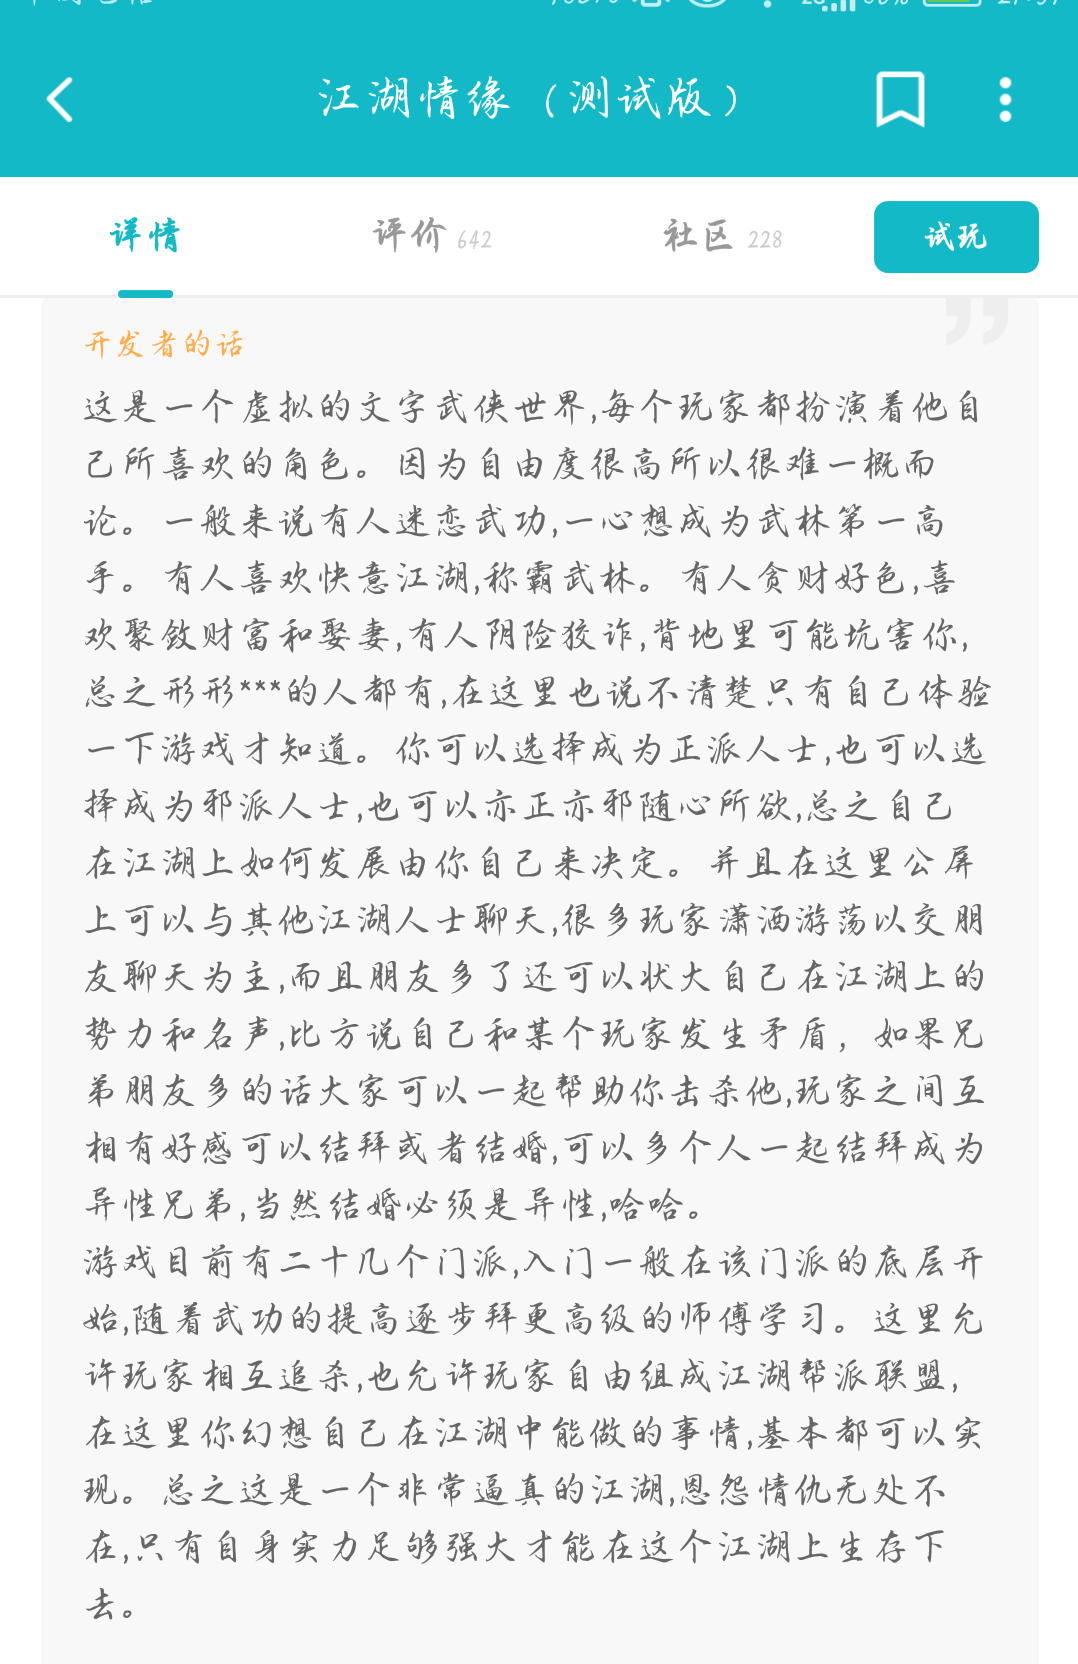 江湖情缘（测试版）
详情
评价 642
社区 228
试玩
开发者的话
这是一个虚拟的文字武侠世界,每个玩家都扮演着他自
己所喜欢的角色。因为自由度很高所以很难一概而
论。一般来说有人迷恋武功,一心想成为武林第一高
手。有人喜欢快意江湖,称霸武林。有人贪财好色,喜
欢聚敛财富和娶妻,有人阴险狡诈,背地里可能坑害你,
总之形形***的人都有,在这里也说不清楚只有自己体验
一下游戏才知道。你可以选择成为正派人士,也可以选
择成为邪派人士,也可以亦正亦邪随心所欲,总之自己
在江湖上如何发展由你自己来决定。并且在这里公屏
上可以与其他江湖人士聊天,很多玩家潇洒游荡以交朋
友聊天为主,而且朋友多了还可以状大自己在江湖上的
势力和名声,比方说自己和某个玩家发生矛盾，如果兄
弟朋友多的话大家可以一起帮助你击杀他,玩家之间互
相有好感可以结拜或者结婚,可以多个人一起结拜成为
异性兄弟,当然结婚必须是异性,哈哈。
游戏目前有二十几个门派,入门一般在该门派的底层开
始,随着武功的提高逐步拜更高级的师傅学习。这里允
许玩家相互追杀,也允许玩家自由组成江湖帮派联盟,
在这里你幻想自己在江湖中能做的事情,基本都可以实
现。总之这是一个非常逼真的江湖,恩怨情仇无处不
在,只有自身实力足够强大才能在这个江湖上生存下
去。